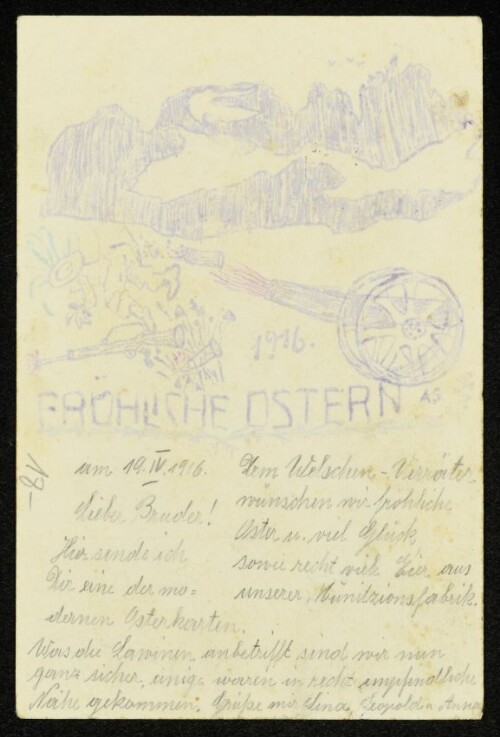 1916.
FRÖHLICHE OSTERN
A.S.
18-
am 19.IV.1916.
Lieber Bruder!
Hier sende ich
Dir eine der mo=
dernen Osterkarten.
Dem Welschen-Verräter
wünschen wir fröhliche
Oster u. viel Glück
sowie recht viele Eier aus
unserer Munitzionsfabrik.
Was die Lawinen anbetrifft sind wir nun
ganz sicher, einige waren in recht ungefindliche
Nähe gekommen. Grüße mir Lina, Leopold u. Anna